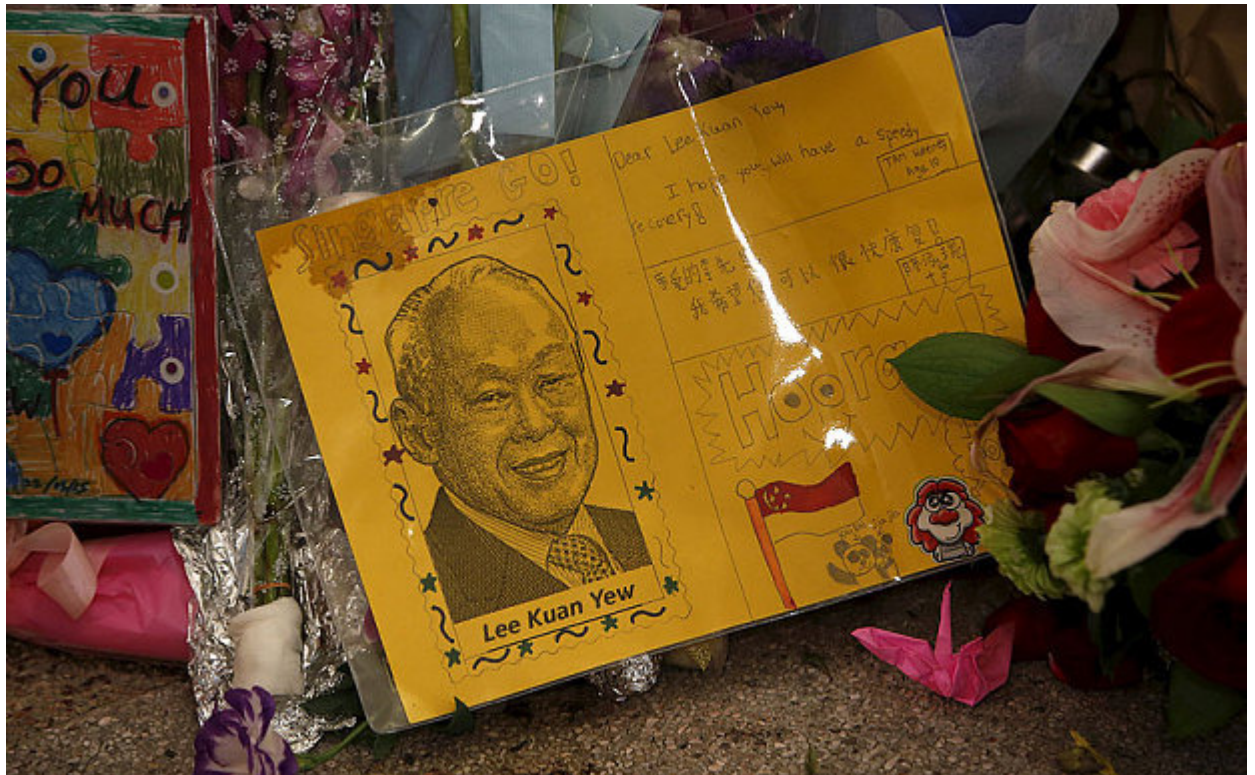 YOU
So
MUCH
Singapore Go!
Lee Kuan Yew
Dear Lee Kuan Yew
I hope you will have a speedy
recovery!
Age 10
亲爱的李先
我希望你可以很快康复!
十岁
Hoora